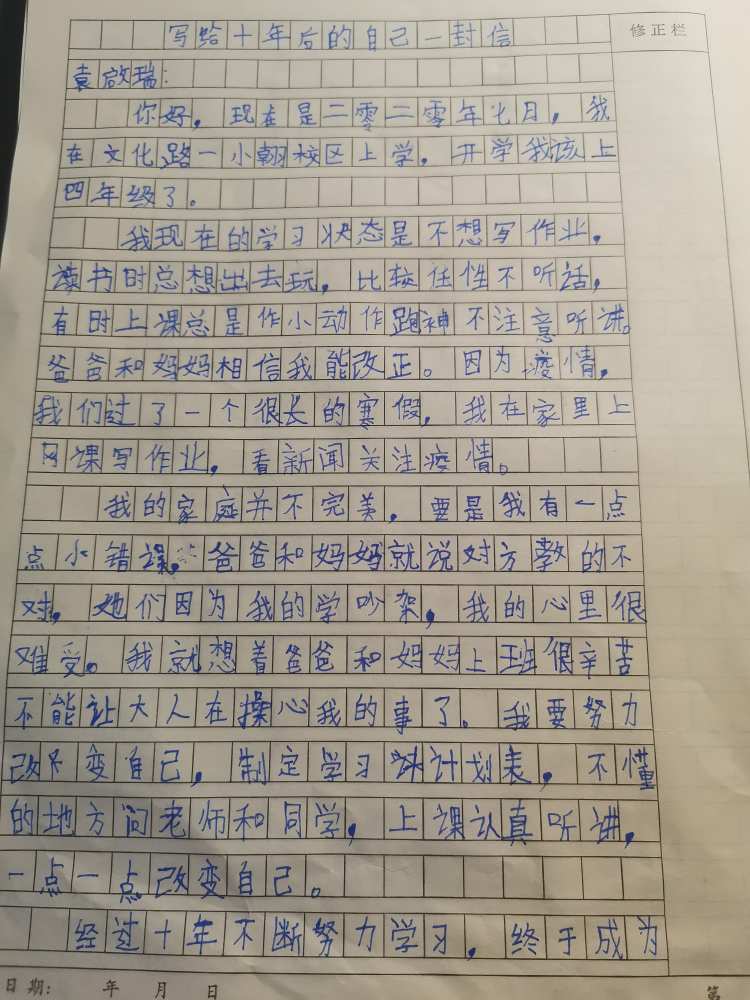 写给十年后的自己一封信
修正栏
袁启瑞:
你好，现在是二零二零年七月，我
在文化路一小翱校区上学，开学我该上
四年级了。
我现在的学习状态是不想写作业，
读书时总想出去玩，比较任性不听话，
有时上课总是作小动作跑神不注意听讲。
爸爸和妈妈相信我能改正。因为疫情，
我们过了一个很长的寒假，我在家里上
网课写作业，看新闻关注疫情。
我的家庭并不完美，要是我有一点
点小错误，爸爸和妈妈就说对方教的不
对，他们因为我的学吵架，我的心里很
难受。我就想着爸爸和妈妈上班很辛苦
不能让大人在操心我的事了。我要努力
改变自己，制定学习计划表，不懂
的地方问老师和同学，上课认真听讲，
一点一点改变自己。
经过十年不断努力学习，终于成为
日期: 年 月 日
第